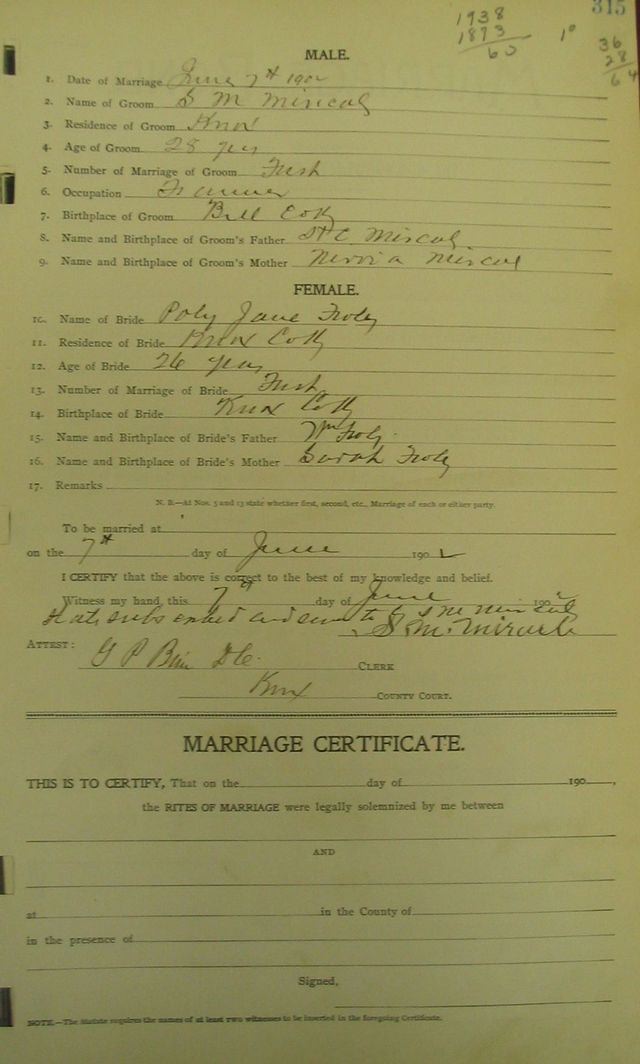 315
1938
1893
60
1°
36
28
64
MALE.
1. Date of Marriage June 7th 1902
2. Name of Groom S M Miricul
3. Residence of Groom Knox
4. Age of Groom 28 yrs
5. Number of Marriage of Groom First
6. Occupation Farmer
7. Birthplace of Groom Bell Coty
8. Name and Birthplace of Groom's Father Miscul
9. Name and Birthplace of Groom's Mother Mircul
FEMALE.
10. Name of Bride Poly Jane Froly
11. Residence of Bride Knox Coty
12. Age of Bride 26 years
13. Number of Marriage of Bride First
14. Birthplace of Bride Knox Coty
15. Name and Birthplace of Bride's Father Wm Froly
16. Name and Birthplace of Bride's Mother Sarah Froly
17. Remarks
N. B.—At Nos. 5 and 13 state whether first, second, etc., Marriage of each or either party.
To be married at
on the 7th day of June 1902
I CERTIFY that the above is correct to the best of my knowledge and belief.
Witness my hand, this 7th day of June 1902
subscribed and sworn to by S M
S. M. Miracle
ATTEST: G P D C CLERK
Knx COUNTY COURT.
MARRIAGE CERTIFICATE.
THIS IS TO CERTIFY, That on the day of 190 ,
the RITES OF MARRIAGE were legally solemnized by me between
AND
at in the County of
in the presence of
Signed,
NOTE.—The Statute requires the names of at least two witnesses to be inserted in the foregoing Certificate.